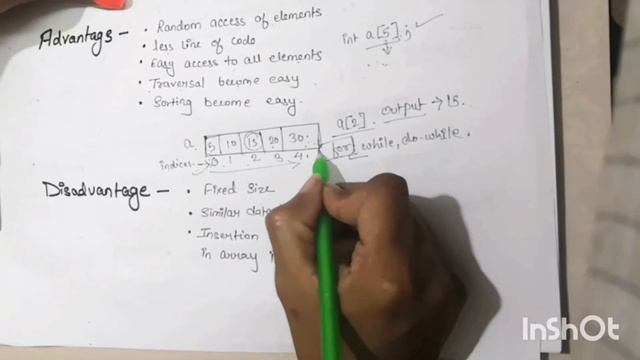 Advantags - • Random access of elements
• less line of code
• Easy access to all elements
• Traversal become easy
• Sorting become easy.
int a[5];
a. 5 10 15 20 30
indices → 0 1 2 3 4
a[2]. output → 15.
for, while, do-while.
Disadvantage - • Fixed Size
• Similar
• Insertion
in array
InShOt